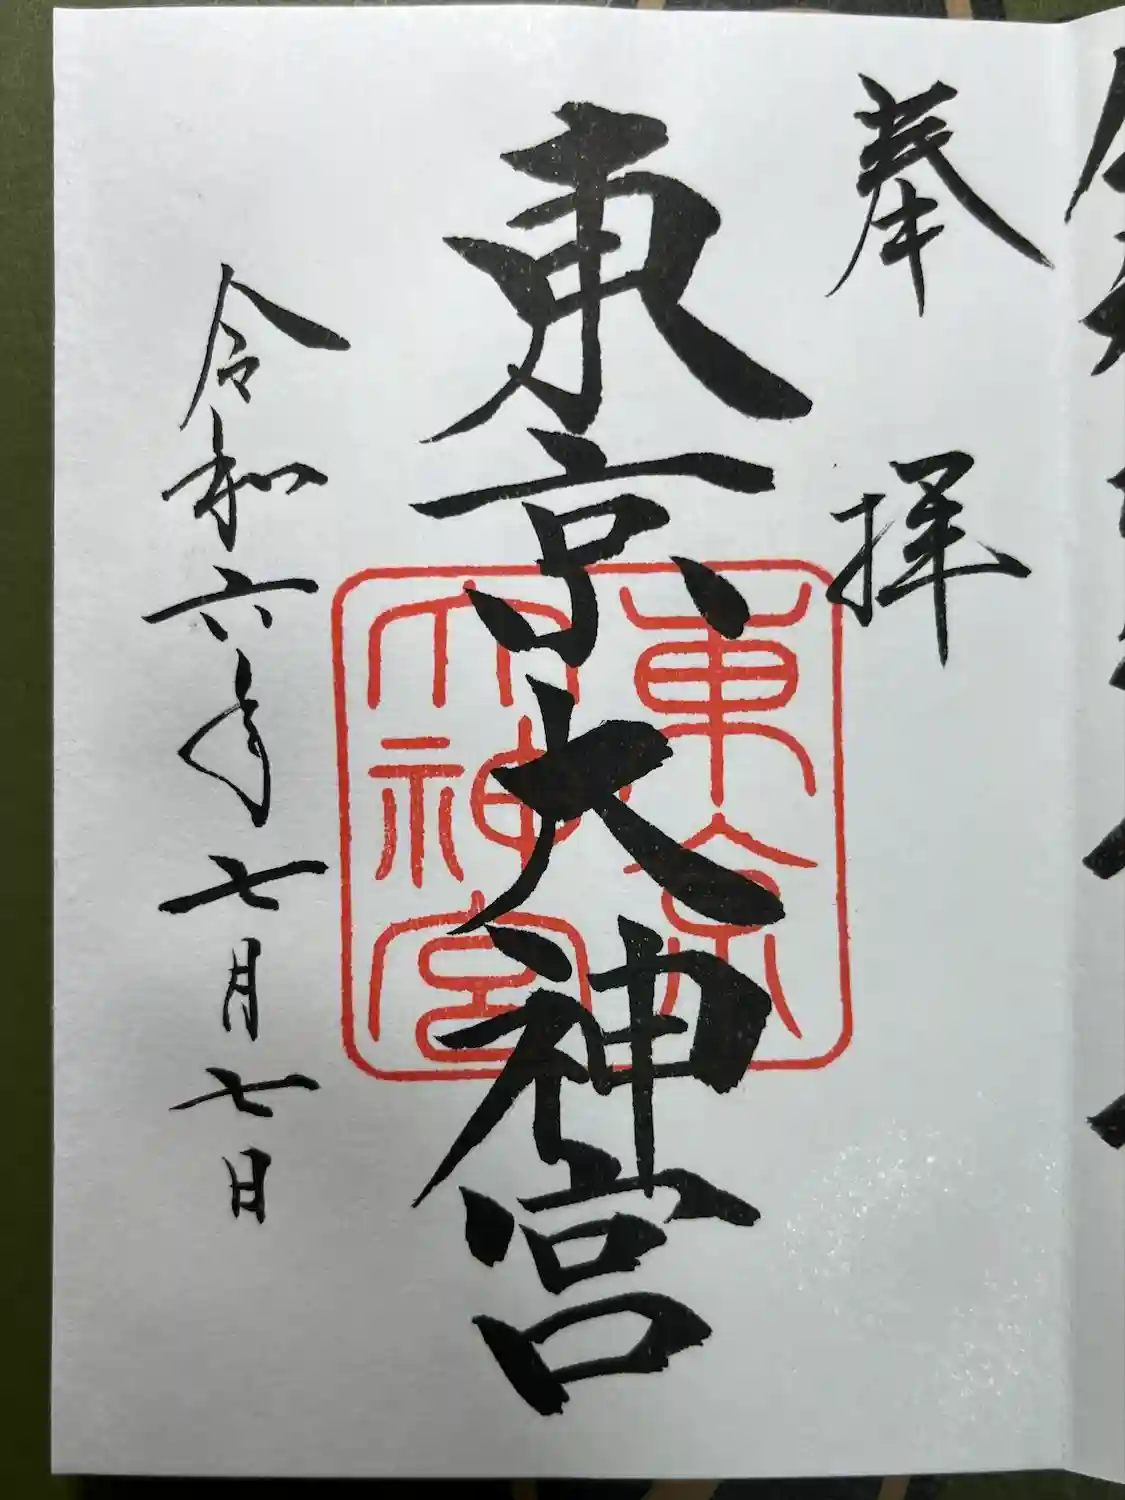 奉拝
東京大神宮
東京
大神宮
令和六年七月七日